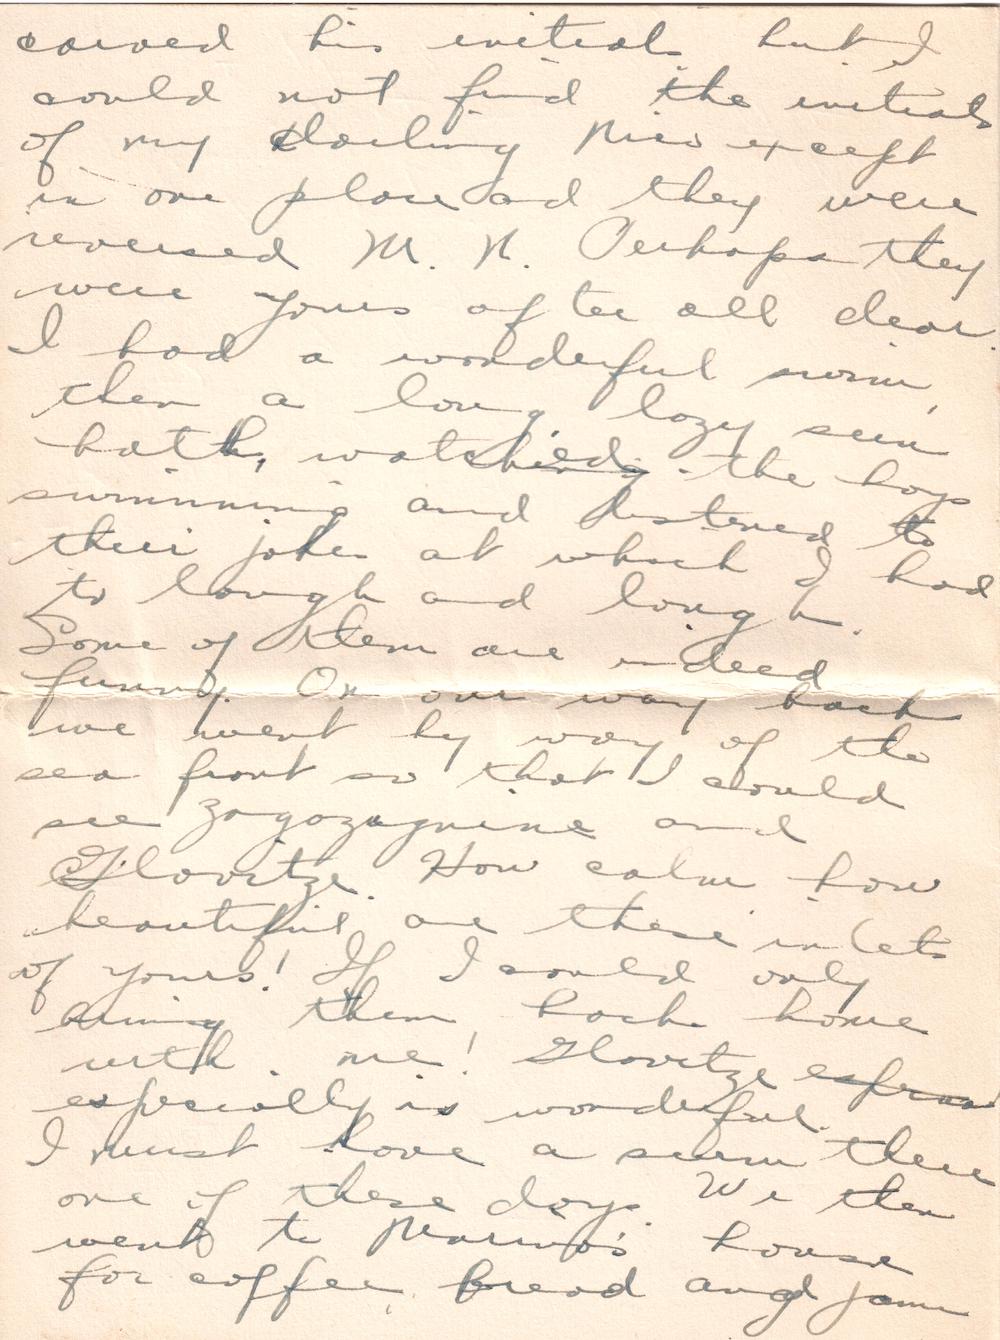 carved his initials but I
could not find the initials
of my darling Nico except
in one place and they were
reversed M. N. Perhaps they
were yours after all dear.
I had a wonderful swim,
then a long lazy sun
bath, watched the boys
swimming and listened to
their jokes at which I had
to laugh and laugh.
Some of them are indeed
funny. On our way back
we went by way of the
sea front so that I could
see Zagozagnine and
Glovitze. How calm how
beautiful are these inlets
of yours! If I could only
bring them back home
with me! Glovitze
especially is wonderful.
I must have a swim there
one of these days. We then
went to Marino's house
for coffee, bread and jam